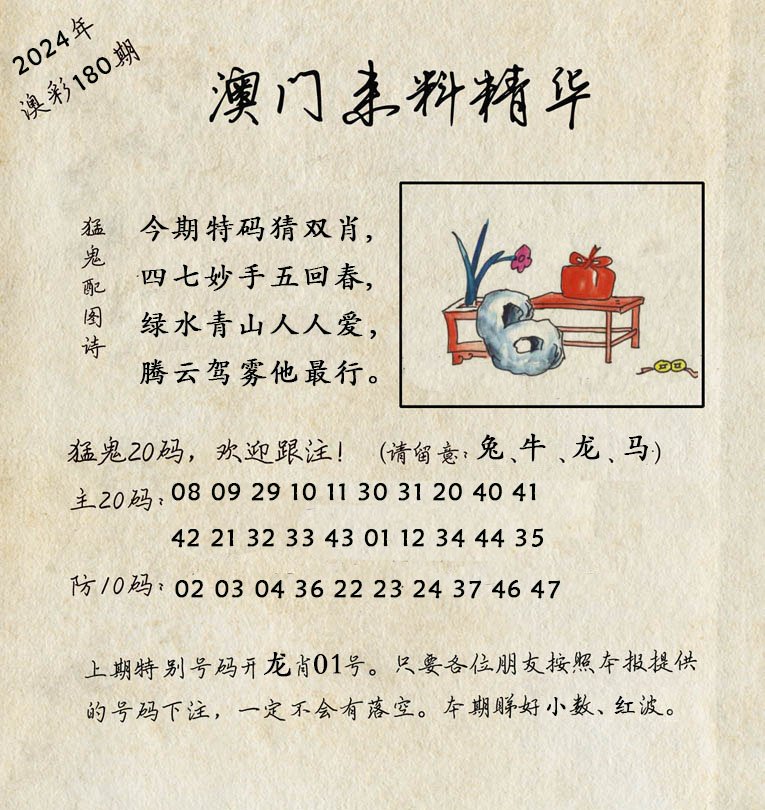 2024年
澳彩180期
澳门来料精华
猛鬼配图诗
今期特码猜双肖，
四七妙手五回春，
绿水青山人人爱，
腾云驾雾他最行。
猛鬼20码，欢迎跟注！（请留意：兔、牛、龙、马）
主20码：08 09 29 10 11 30 31 20 40 41
42 21 32 33 43 01 12 34 44 35
防10码：02 03 04 36 22 23 24 37 46 47
上期特别号码开龙肖01号。只要各位朋友按照本报提供
的号码下注，一定不会有落空。本期睇好小数、红波。